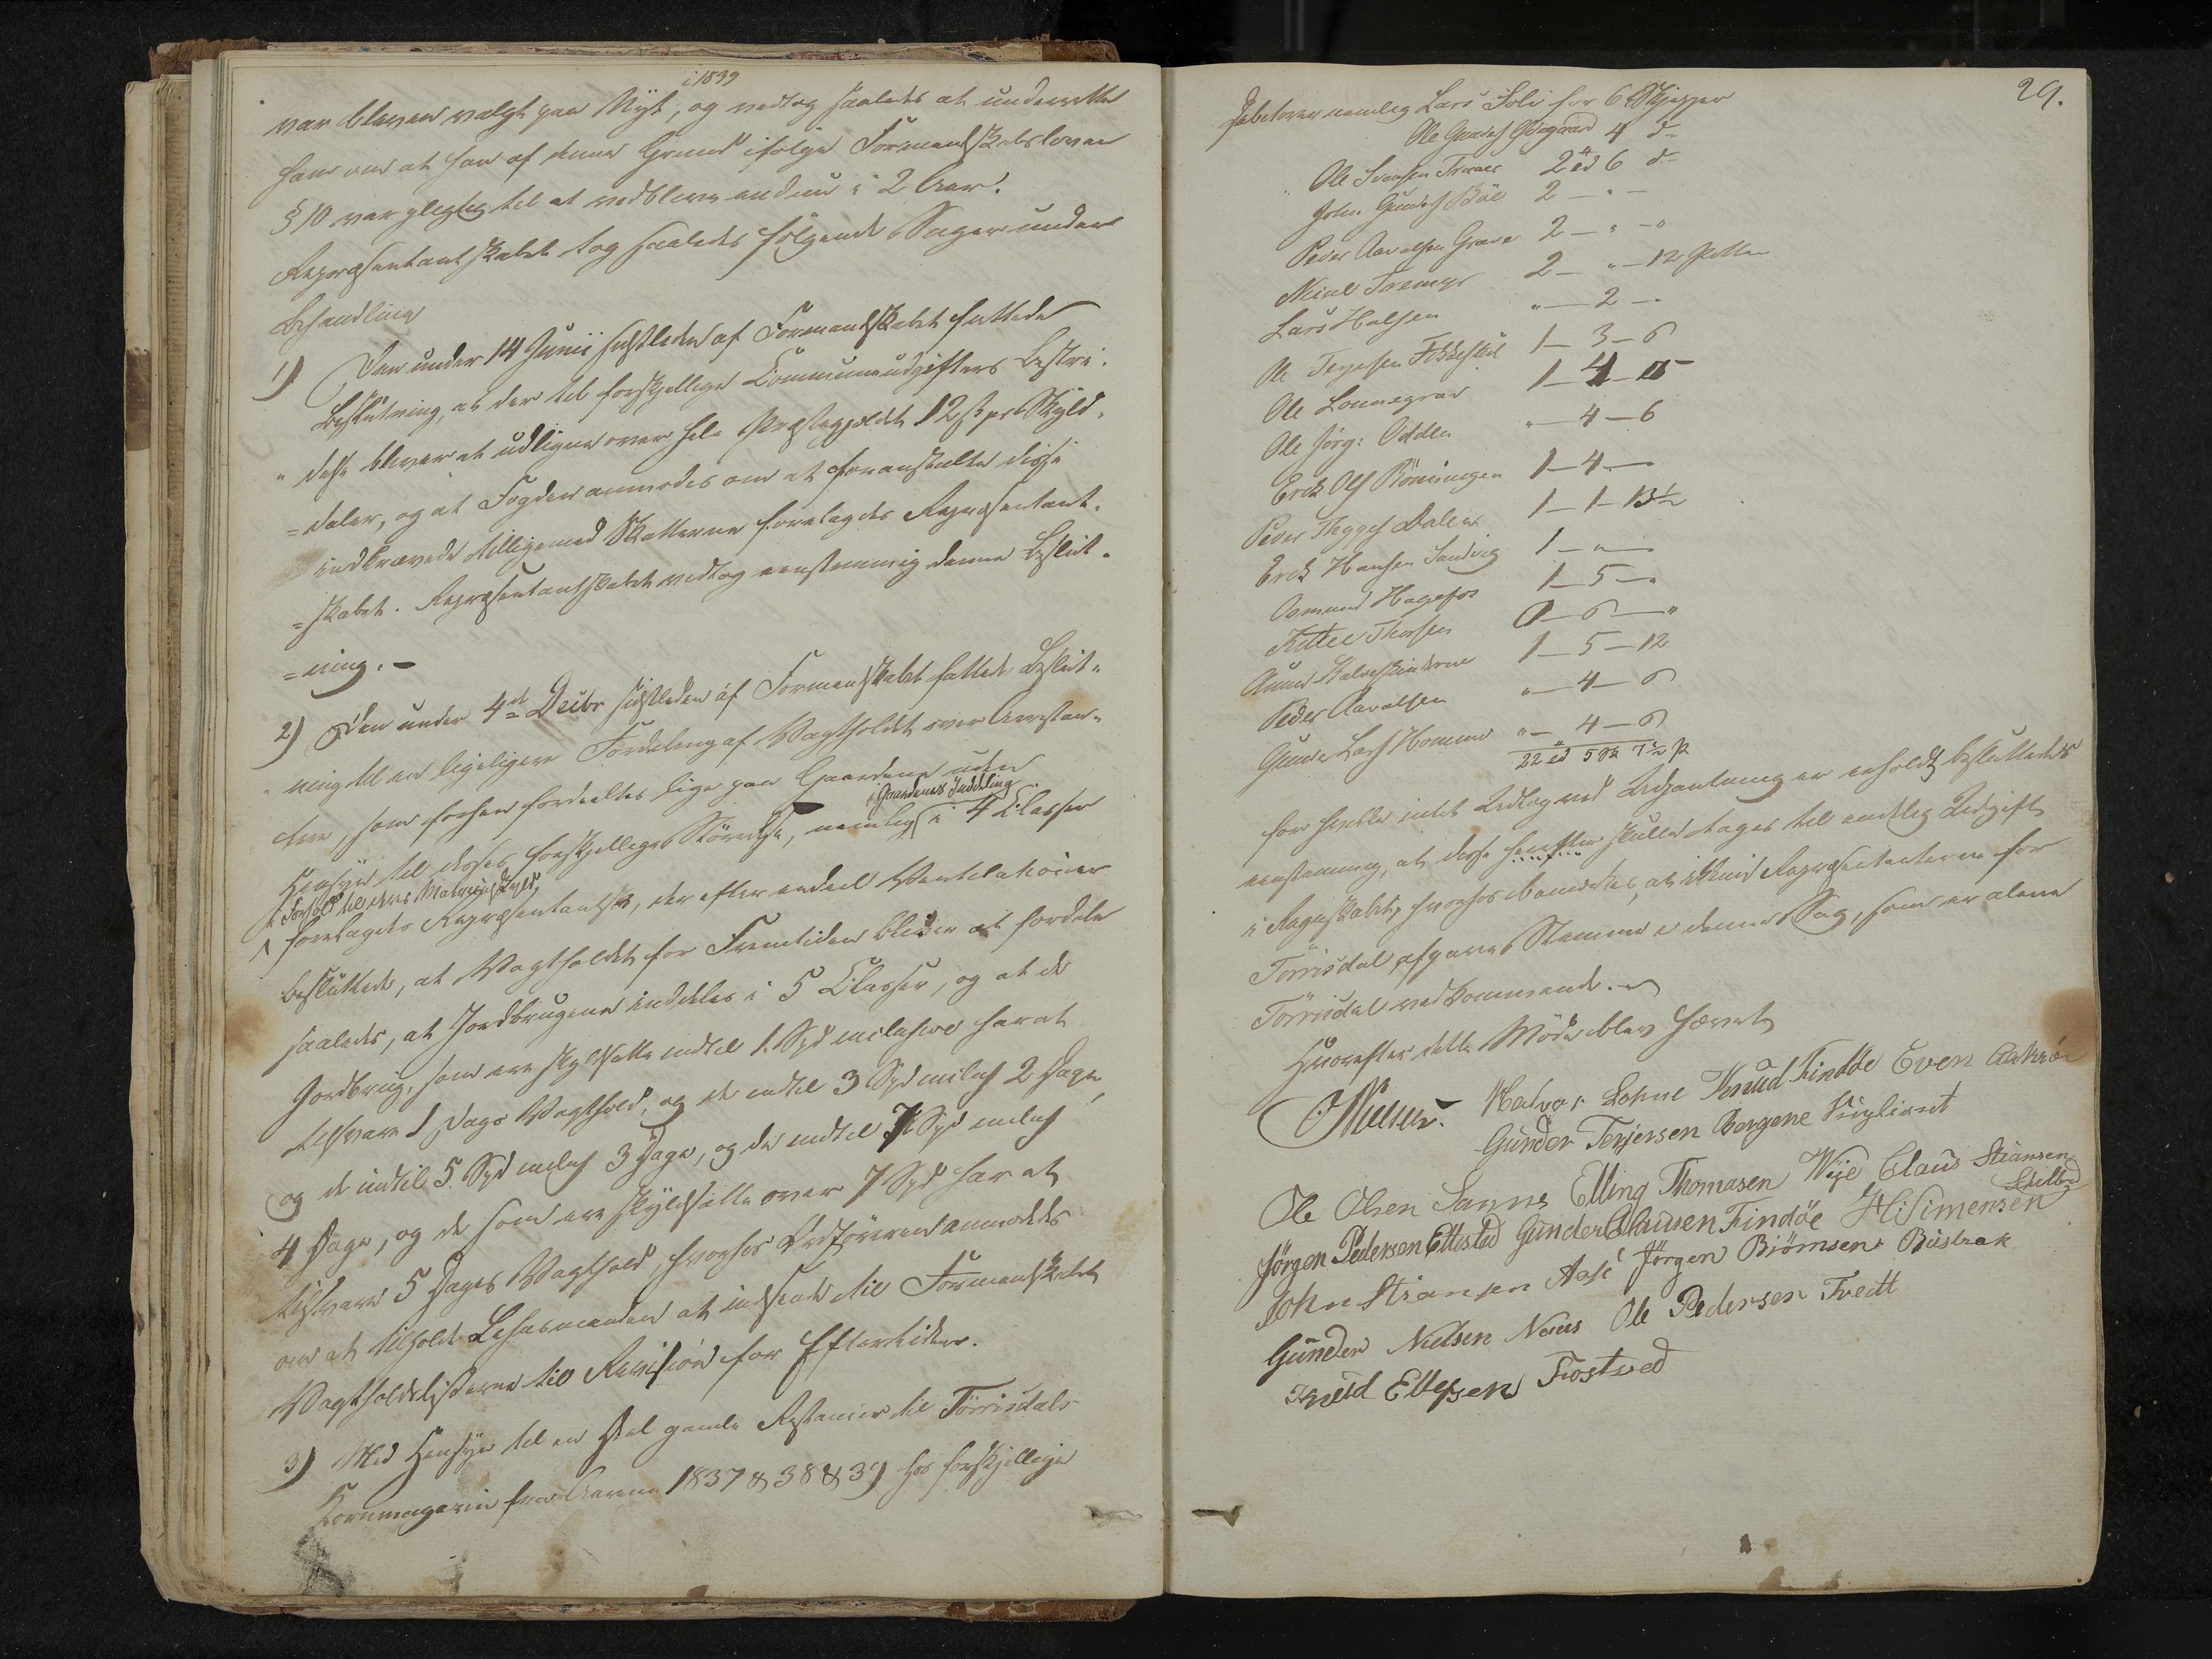 i 1839
var bleven valgt paa Nyt, og vedtog saaledes at underrette
ham om at han af denne Grund ifölge Formandskabsloven
§ 10 var pligtig til at vedblive endnu i 2 Aar.
Repræsentantskabet tog saaledes fölgende Sager under
Behandling
1) Den under 14 Junii sidstleden af Formandskabet fattede
Beslutning, at der til forskjellige Communeudgifters Bestri-
delse bliver at udligne over hele Præstegjeldet 12 ß pr Skyld-
=daler, og at Fogden anmodes om at foranstalte disse
indkrævede tilligemed Skatterne forelagdes Repræsentant-
=skabet. Repræsentantskabet vedtog eenstemmig denne Beslut-
=ning. -
2) Den under 4de Decbr sidstleden af Formandskabet fattet Beslut-
ning til en ligeligere Fordeling af Vagtholdet over Arrestan-
ter, som forhen fordeeltes lige paa Gaardene uden
Hensyn til disses forskjellige Störrelse, nemlig i 4 Classer
Gaardenes Inddeling
i Forhold til deres Matriculskyld,
forelagdes Repræsentantsk, der efter endeel Ventilationer
besluttede, at Vagtholdet for Fremtiden bliver at fordele
saaledes, at Jordbrugene inddeles i 5 Classer, og at de
Jordbrug, som ere skyldsatte indtil 1 Spd inclusive har at
tilsvare 1 Dags Vagthold, og de indtil 3 Spd inclus 2 Dage,
og de indtil 5 Spd inclus 3 Dage, og de indtil 7 Spd inclus
4 Dage, og de som ere skyldsatte over 7 Spd har at
tilsvare 5 Dages Vagthold, hvorhos Ordföreren anmodedes
om at tilholde Lehnsmanden at indsende til Formandskabet
Vagtholdslisterne til Revision for Eftertiden.
3) Med Hensyn til en Deel gamle Restancer til Törrisdals
Kornmagazin fra Aarene 1837 & 38 & 39 hos forskjellige
29.
Debitorer nemlig Lars Solie for 6 Skjepper
Ole Gundes Ödegaard 4 do
Ole Svensen Traaer 2 td 6 do
John Gundes Böe 2 — " —
Peder Aavalsen Grave 2 — " — "
Niels Toremyr 2 — " — 12 Potter
Lars Halsen " — 2 — "
Ole Terjesen 1 — 3 — 6
Ole Lonnegrav 1 — 4
Ole Jörg: Odden " — 4 — 6
Erik Ols Röiningen 1 — 4 —
Peder Thyges Dalen 1 — 1 — 13½
Erik Hansen Sandvig 1 — " —
Asmund Hagefos 1 — 5 — "
Kittel Thorsen 0 — 6 — "
1 — 5 — 12
Peder Aavalsen " — 4 — 6
Gunde Lars Homme " — 4 — 6
22 td 5 sk 7½ p
for hvilke intet Udlæg ved Udpantning er erholdt, besluttedes
eenstemmig, at disse herefter skulle tages til endelig Udgift
i Regnskabet, hvorhos bemærkes, at ikkun Repræsentanterne for
Törrisdal afgave Stemme i denne Sag, som er alene
Törrisdal vedkommende. —
Hvorefter dette Möde blev hævet
O Nielsen. Halvor Lohne Knud Tindöe Even
Gunder Terjersen Bergene Viigliont
Ole Olsen Sanne Elling Thomasen Weje Claus Stiansen
Jörgen Pedersen Ettested Gunder Clausen Findöe H Simensen
John Stiansen Aase Jörgen Biörnsen Buslrak
Gunder Nielsen Næes Ole Pedersen Tvedt
Knud Ellefsen Frostved